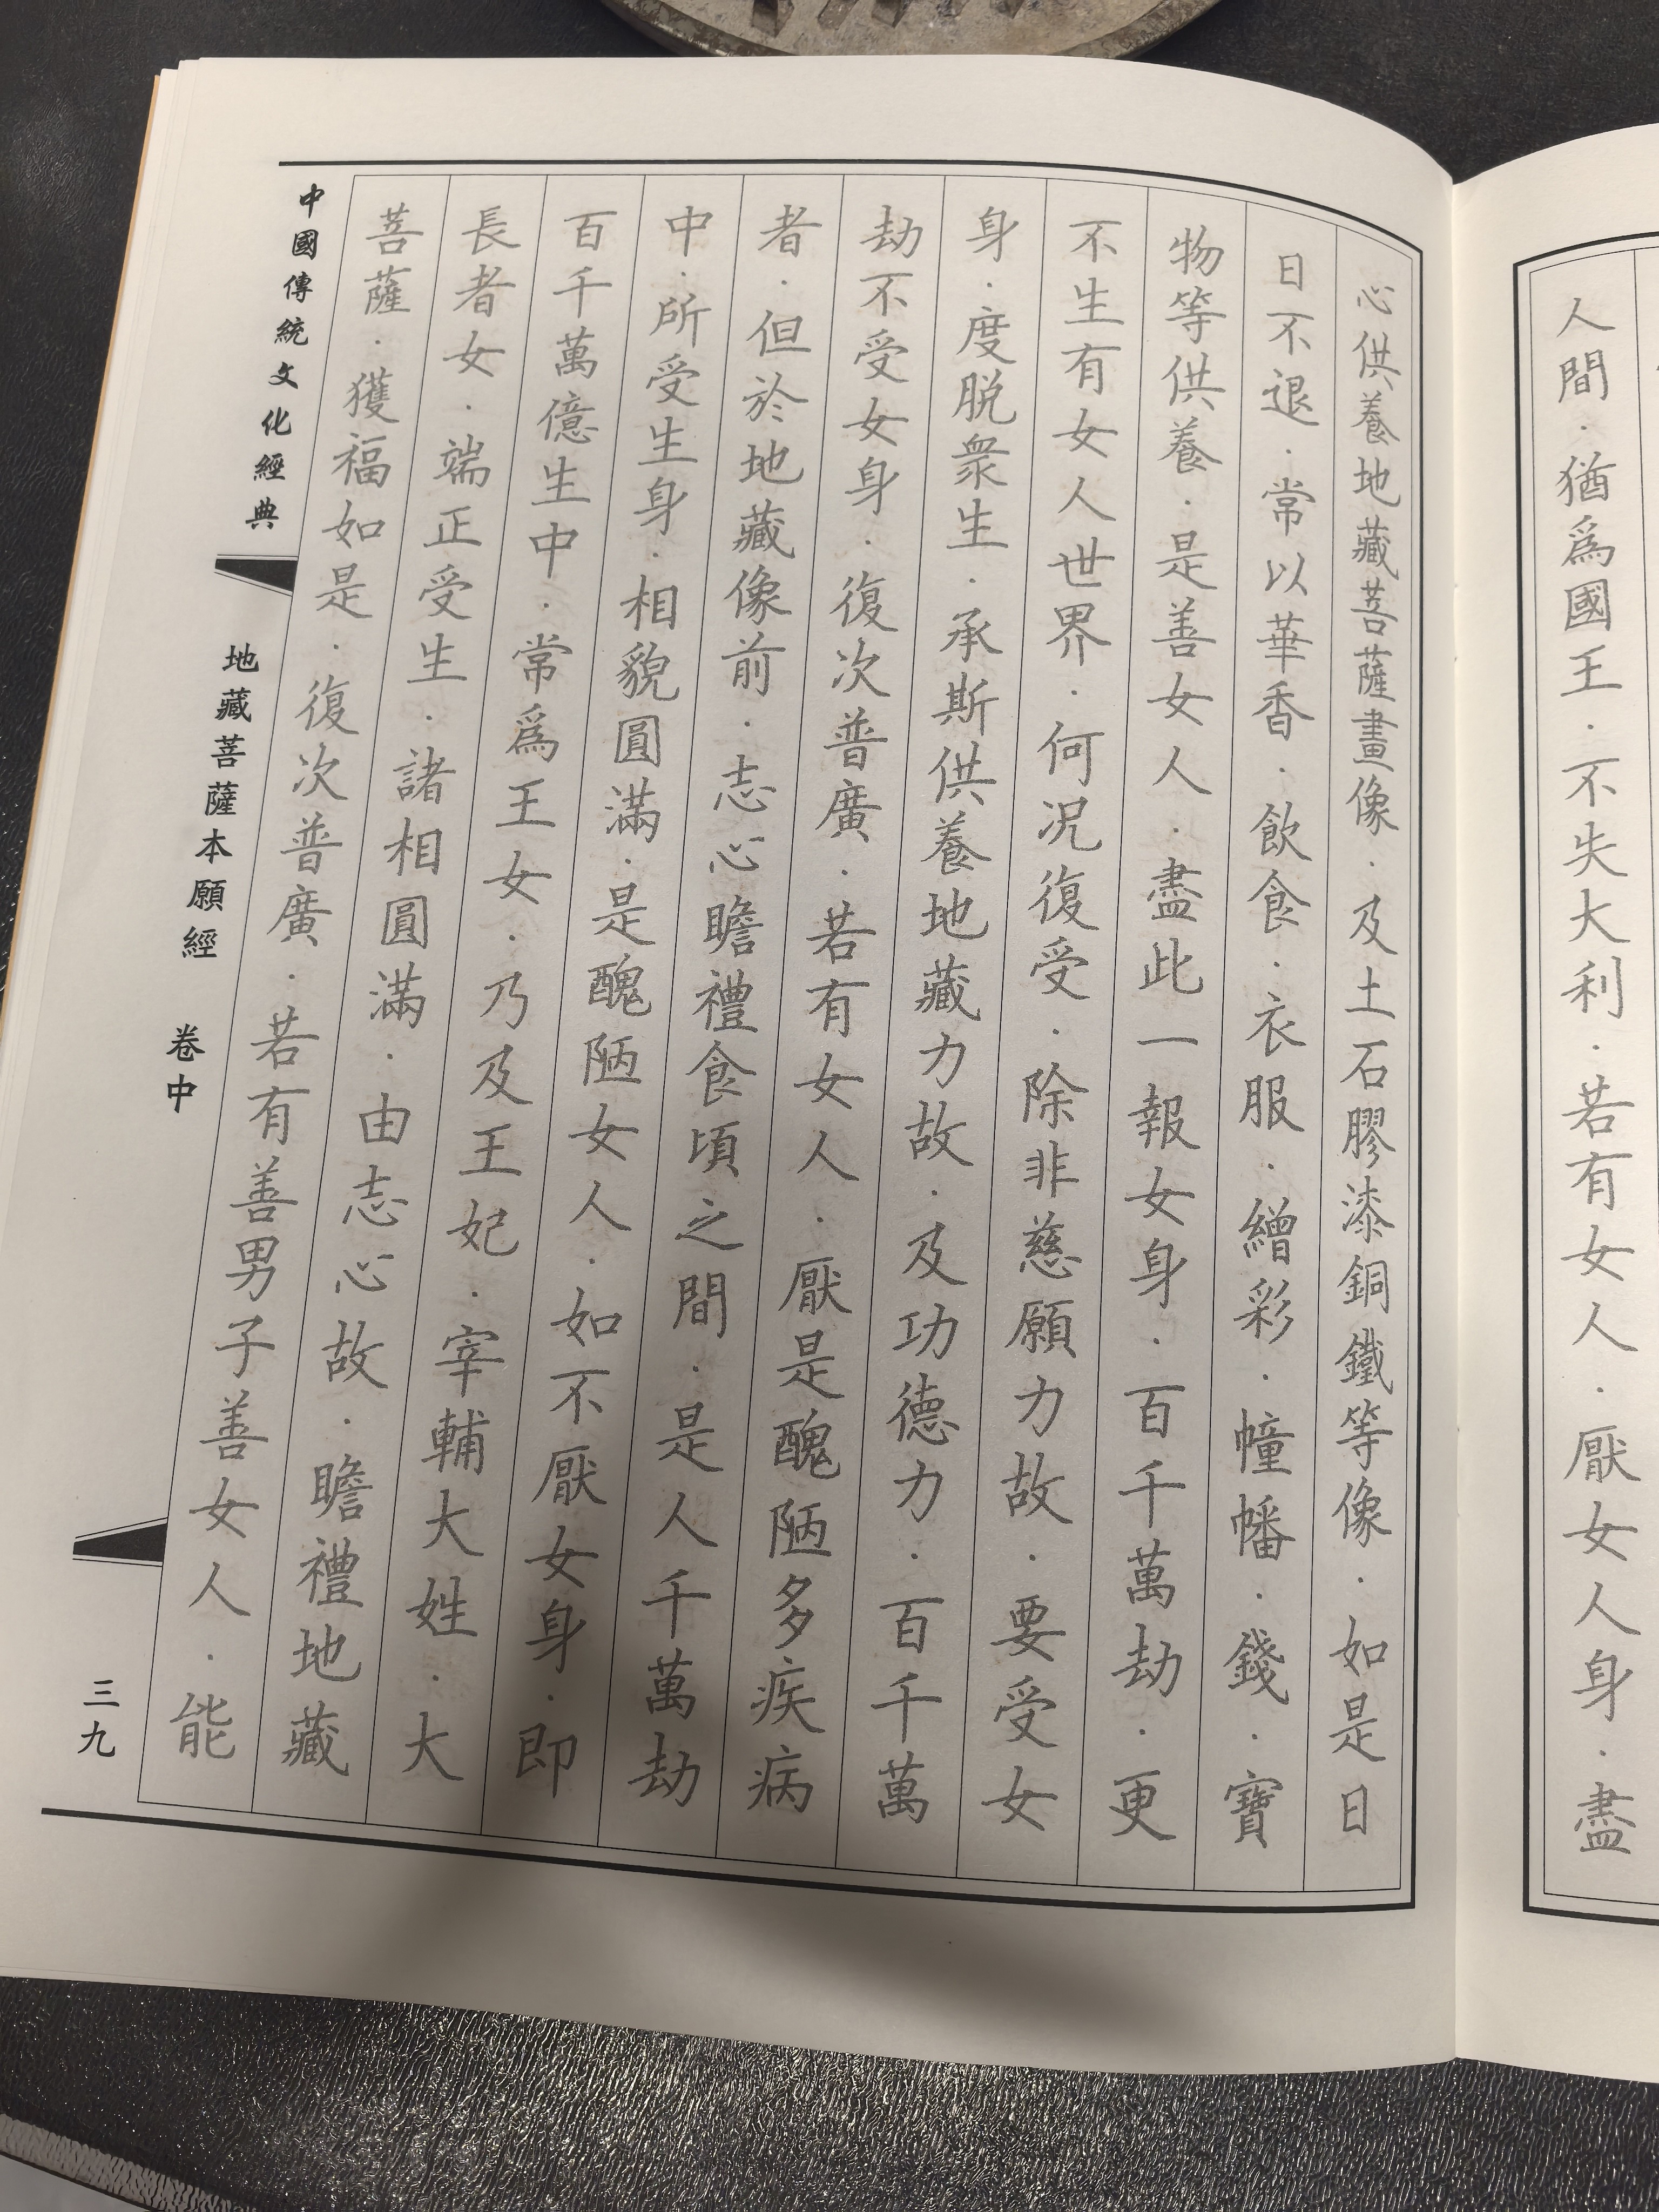 人間．猶爲國王．不失大利．若有女人．厭女人身．盡
心供養地藏菩薩畫像．及土石膠漆銅鐵等像．如是日
日不退．常以華香．飲食．衣服．繒彩．幢幡．錢．寶
物等供養．是善女人．盡此一報女身．百千萬劫．更
不生有女人世界．何况復受．除非慈願力故．要受女
身．度脱衆生．承斯供養地藏力故．及功德力．百千萬
劫不受女身．復次普廣．若有女人．厭是醜陋多疾病
者．但於地藏像前．志心瞻禮食頃之間．是人千萬劫
中．所受生身．相貌圓滿．是醜陋女人．如不厭女身．即
百千萬億生中．常爲王女．乃及王妃．宰輔大姓．大
長者女．端正受生．諸相圓滿．由志心故．瞻禮地藏
菩薩．獲福如是．復次普廣．若有善男子善女人．能
中國傳統文化經典
地藏菩薩本願經 卷中
三九